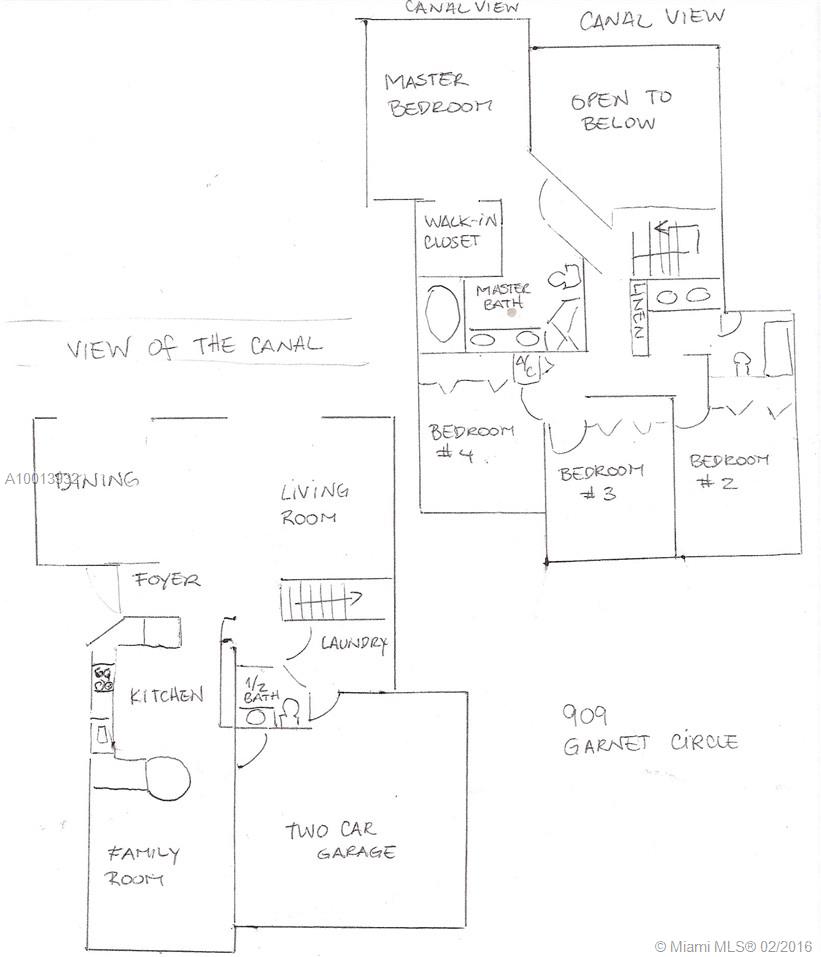 CANAL VIEW
CANAL VIEW
MASTER
BEDROOM
OPEN TO
BELOW
WALK-IN
CLOSET
MASTER
BATH
LINEN
A/C
BEDROOM
#4
BEDROOM
#3
BEDROOM
#2
VIEW OF THE CANAL
A10013932
DINING
LIVING
ROOM
FOYER
LAUNDRY
KITCHEN
1/2
BATH
FAMILY
ROOM
TWO CAR
GARAGE
909
GARNET CIRCLE
© Miami MLS® 02/2016